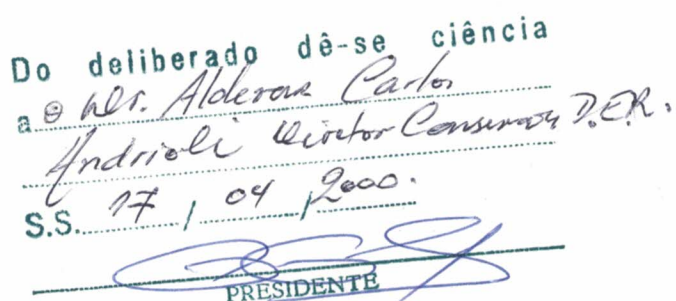 Do deliberado dê-se ciência
a o Dr. Alderar Carlos
Andrioli Diretor Conservação D.E.R.
S.S. 17 / 04 / 2000.
PRESIDENTE